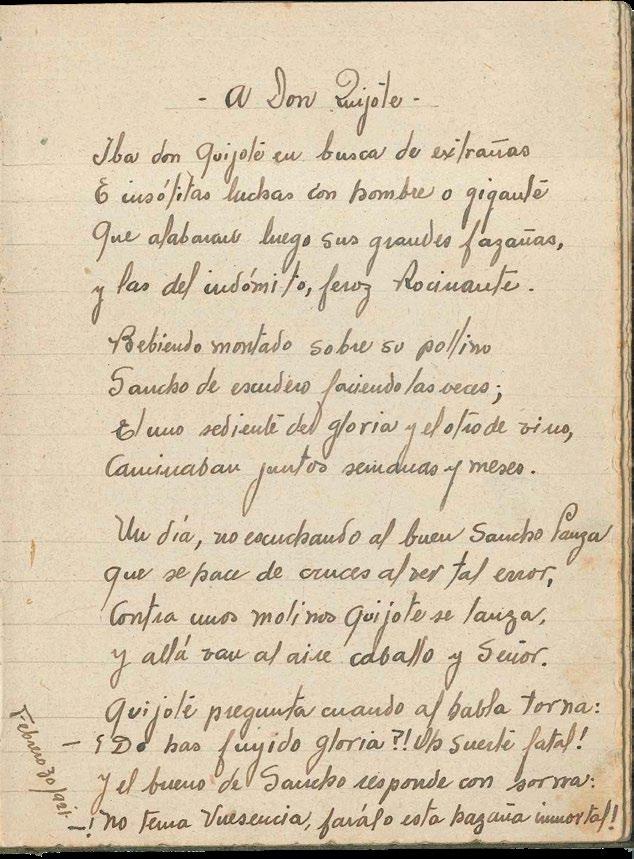 - A Don Quijote -
Iba don Quijote en busca de extrañas
E insólitas luchas con hombre o gigante
Que alabaran luego sus grandes fazañas,
y las del indómito, feroz Rocinante.
Bebiendo montado sobre su pollino
Sancho de escudero faciendo las veces;
El uno sediente de gloria y el otro de vino,
Caminaban juntos semanas y meses.
Un día, no escuchando al buen Sancho Panza
que se hace de cruces al ver tal error,
Contra unos molinos Quijote se lanza,
y allá van al aire caballo y Señor.
Quijote pregunta cuando al habla torna:
- ¿Do has fuyido gloria?! Uh suerte fatal!
y el bueno de Sancho responde con sorna:
-! No tema Vuesencia, farálo esta hazaña inmortal!
Febrero 30/921